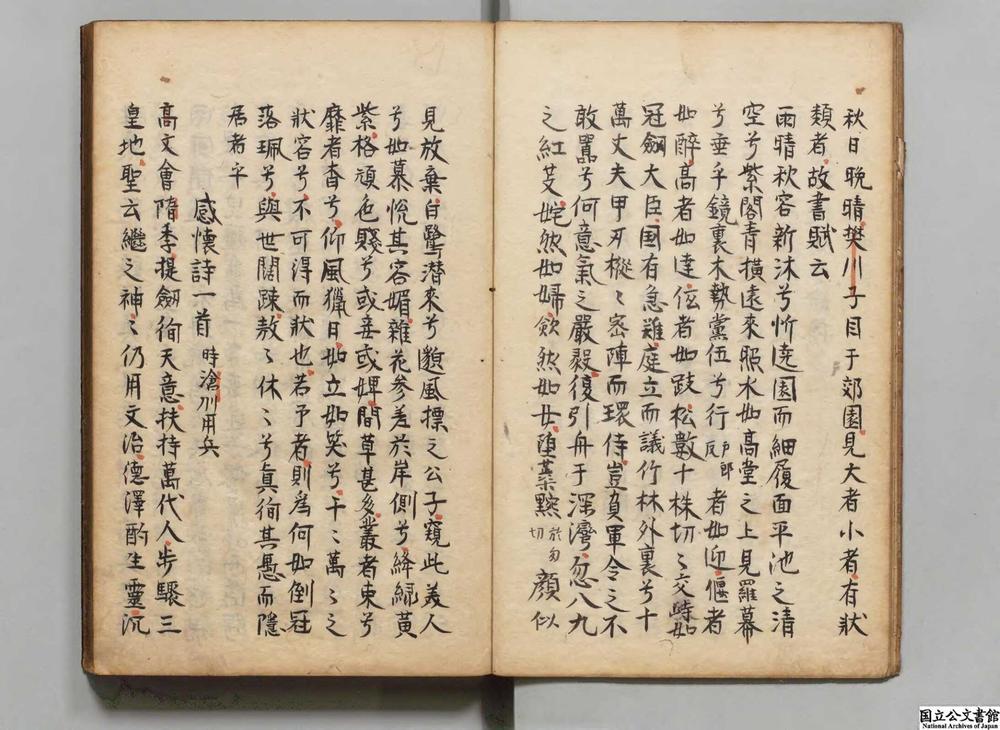 秋日晚晴樊川子目于郊園見大者小者有狀
類者故書賦云
雨晴秋容新沐兮忻逺園而細履面平池之清
空兮紫閣青橫遠來照水如高堂之上見羅幕
兮垂乎鏡裏木勢黨伍兮行戶郎反者如迎偃者
如醉高者如達低者如跂松數十株切〻交峙如
冠劔大臣国有急難庭立而議竹林外裏兮十
萬丈夫甲刃樅〻密陣而環侍豈負軍令之不
敢囂兮何意氣之嚴毅復引舟于深灣忽八九
之紅芰姹然如婦歛然如女堕蘂黦於勿切顔似
見放棄白鷺潜來兮邈風摽之公子窺此美人
兮如慕恱其容媚雜花參差於岸側兮絳緑黃
紫格頑色賤兮或妾或婢間草甚多叢者束兮
靡者杳兮仰風獵日如立如笑兮千〻萬〻之
狀容兮不可得而狀也若予者則爲何如倒冠
落珮兮與世闊踈敖〻休〻兮真徇其愚而隱
居者乎
感懷詩一首 時滄州用兵
高文會隋季提劔徇天意扶持萬代人步驟三
皇地聖云継之神〻仍用文治德澤酌生靈沉
国立公文書館
National Archives of Japan